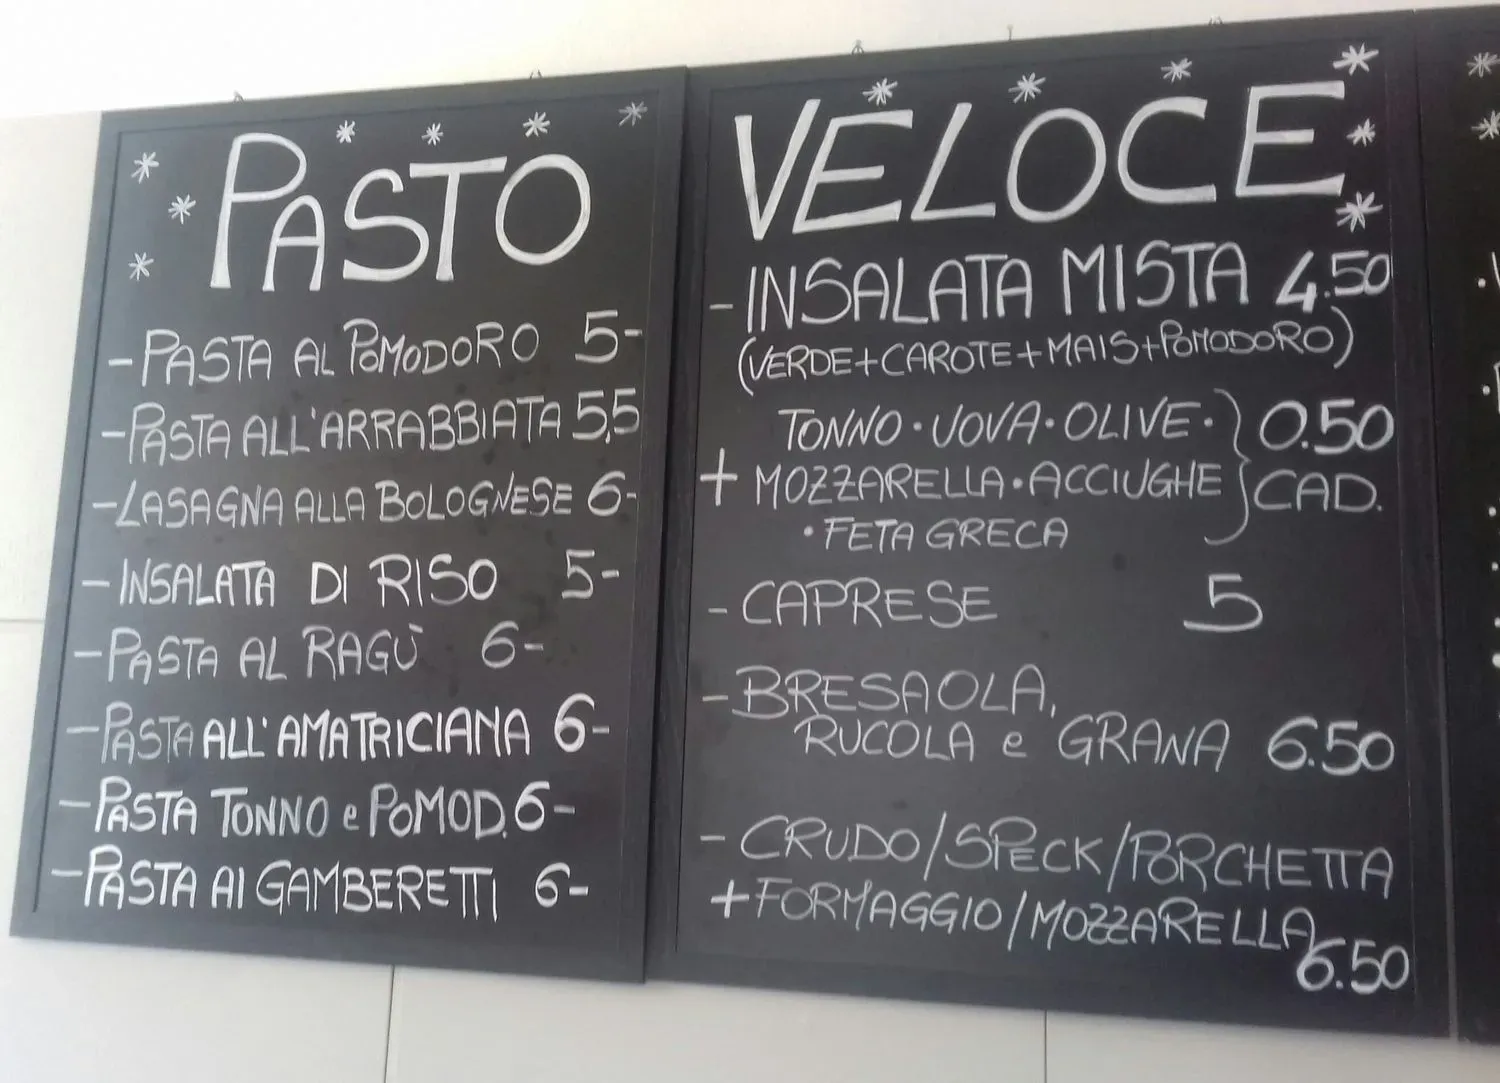 PASTO
- PASTA AL POMODORO 5-
- PASTA ALL'ARRABBIATA 5,5
- LASAGNA ALLA BOLOGNESE 6-
- INSALATA DI RISO 5-
- PASTA AL RAGÙ 6-
- PASTA ALL'AMATRICIANA 6-
- PASTA TONNO e POMOD. 6-
- PASTA AI GAMBERETTI 6-
VELOCE
- INSALATA MISTA 4.50
(VERDE+CAROTE+MAIS+POMODORO)
TONNO · UOVA · OLIVE · } 0.50
+ MOZZARELLA · ACCIUGHE } CAD.
· FETA GRECA
- CAPRESE 5
- BRESAOLA,
RUCOLA e GRANA 6.50
- CRUDO/SPECK/PORCHETTA
+ FORMAGGIO/MOZZARELLA
6.50